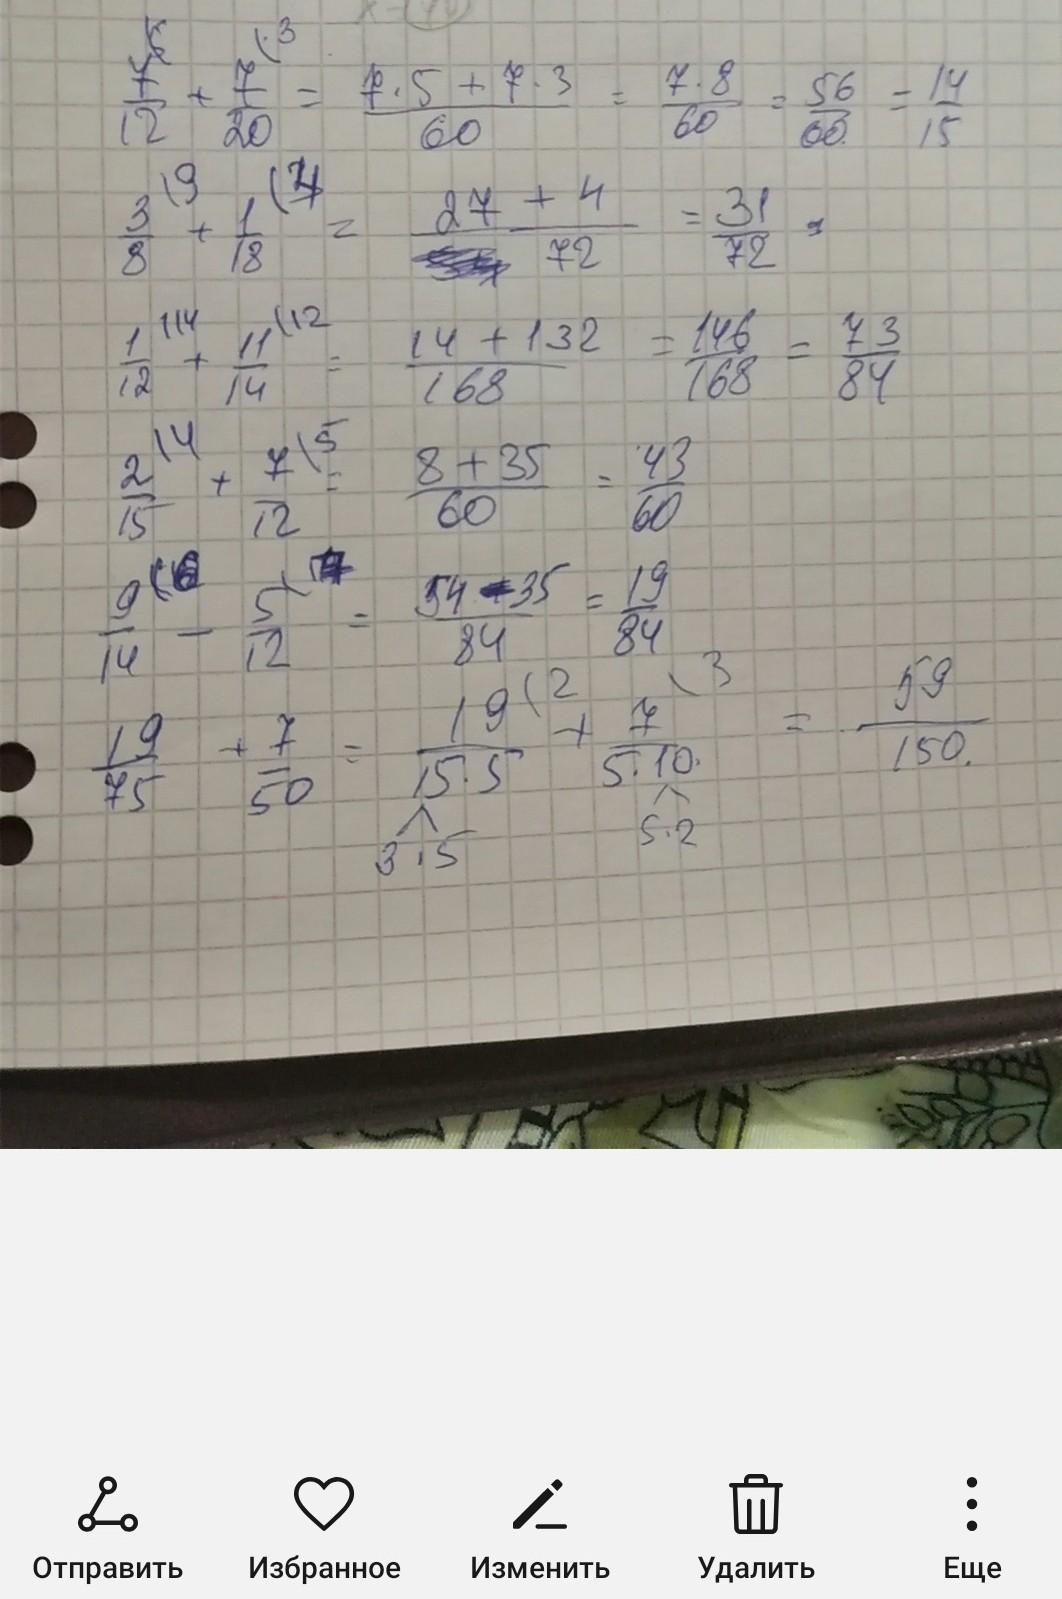 7/12 \5 + 7/20 \3 = (7·5 + 7·3)/60 = 7·8/60 = 56/60 = 14/15
3/8 \9 + 1/18 \4 = (27 + 4)/72 = 31/72
1/12 \14 + 11/14 \12 = (14 + 132)/168 = 146/168 = 73/84
2/15 \4 + 7/12 \5 = (8 + 35)/60 = 43/60
9/14 \6 − 5/12 \7 = (54 − 35)/84 = 19/84
19/75 + 7/50 = 19/(15·5) \2 + 7/(5·10) \3 = 59/150.
3·5 5·2
Отправить Избранное Изменить Удалить Еще